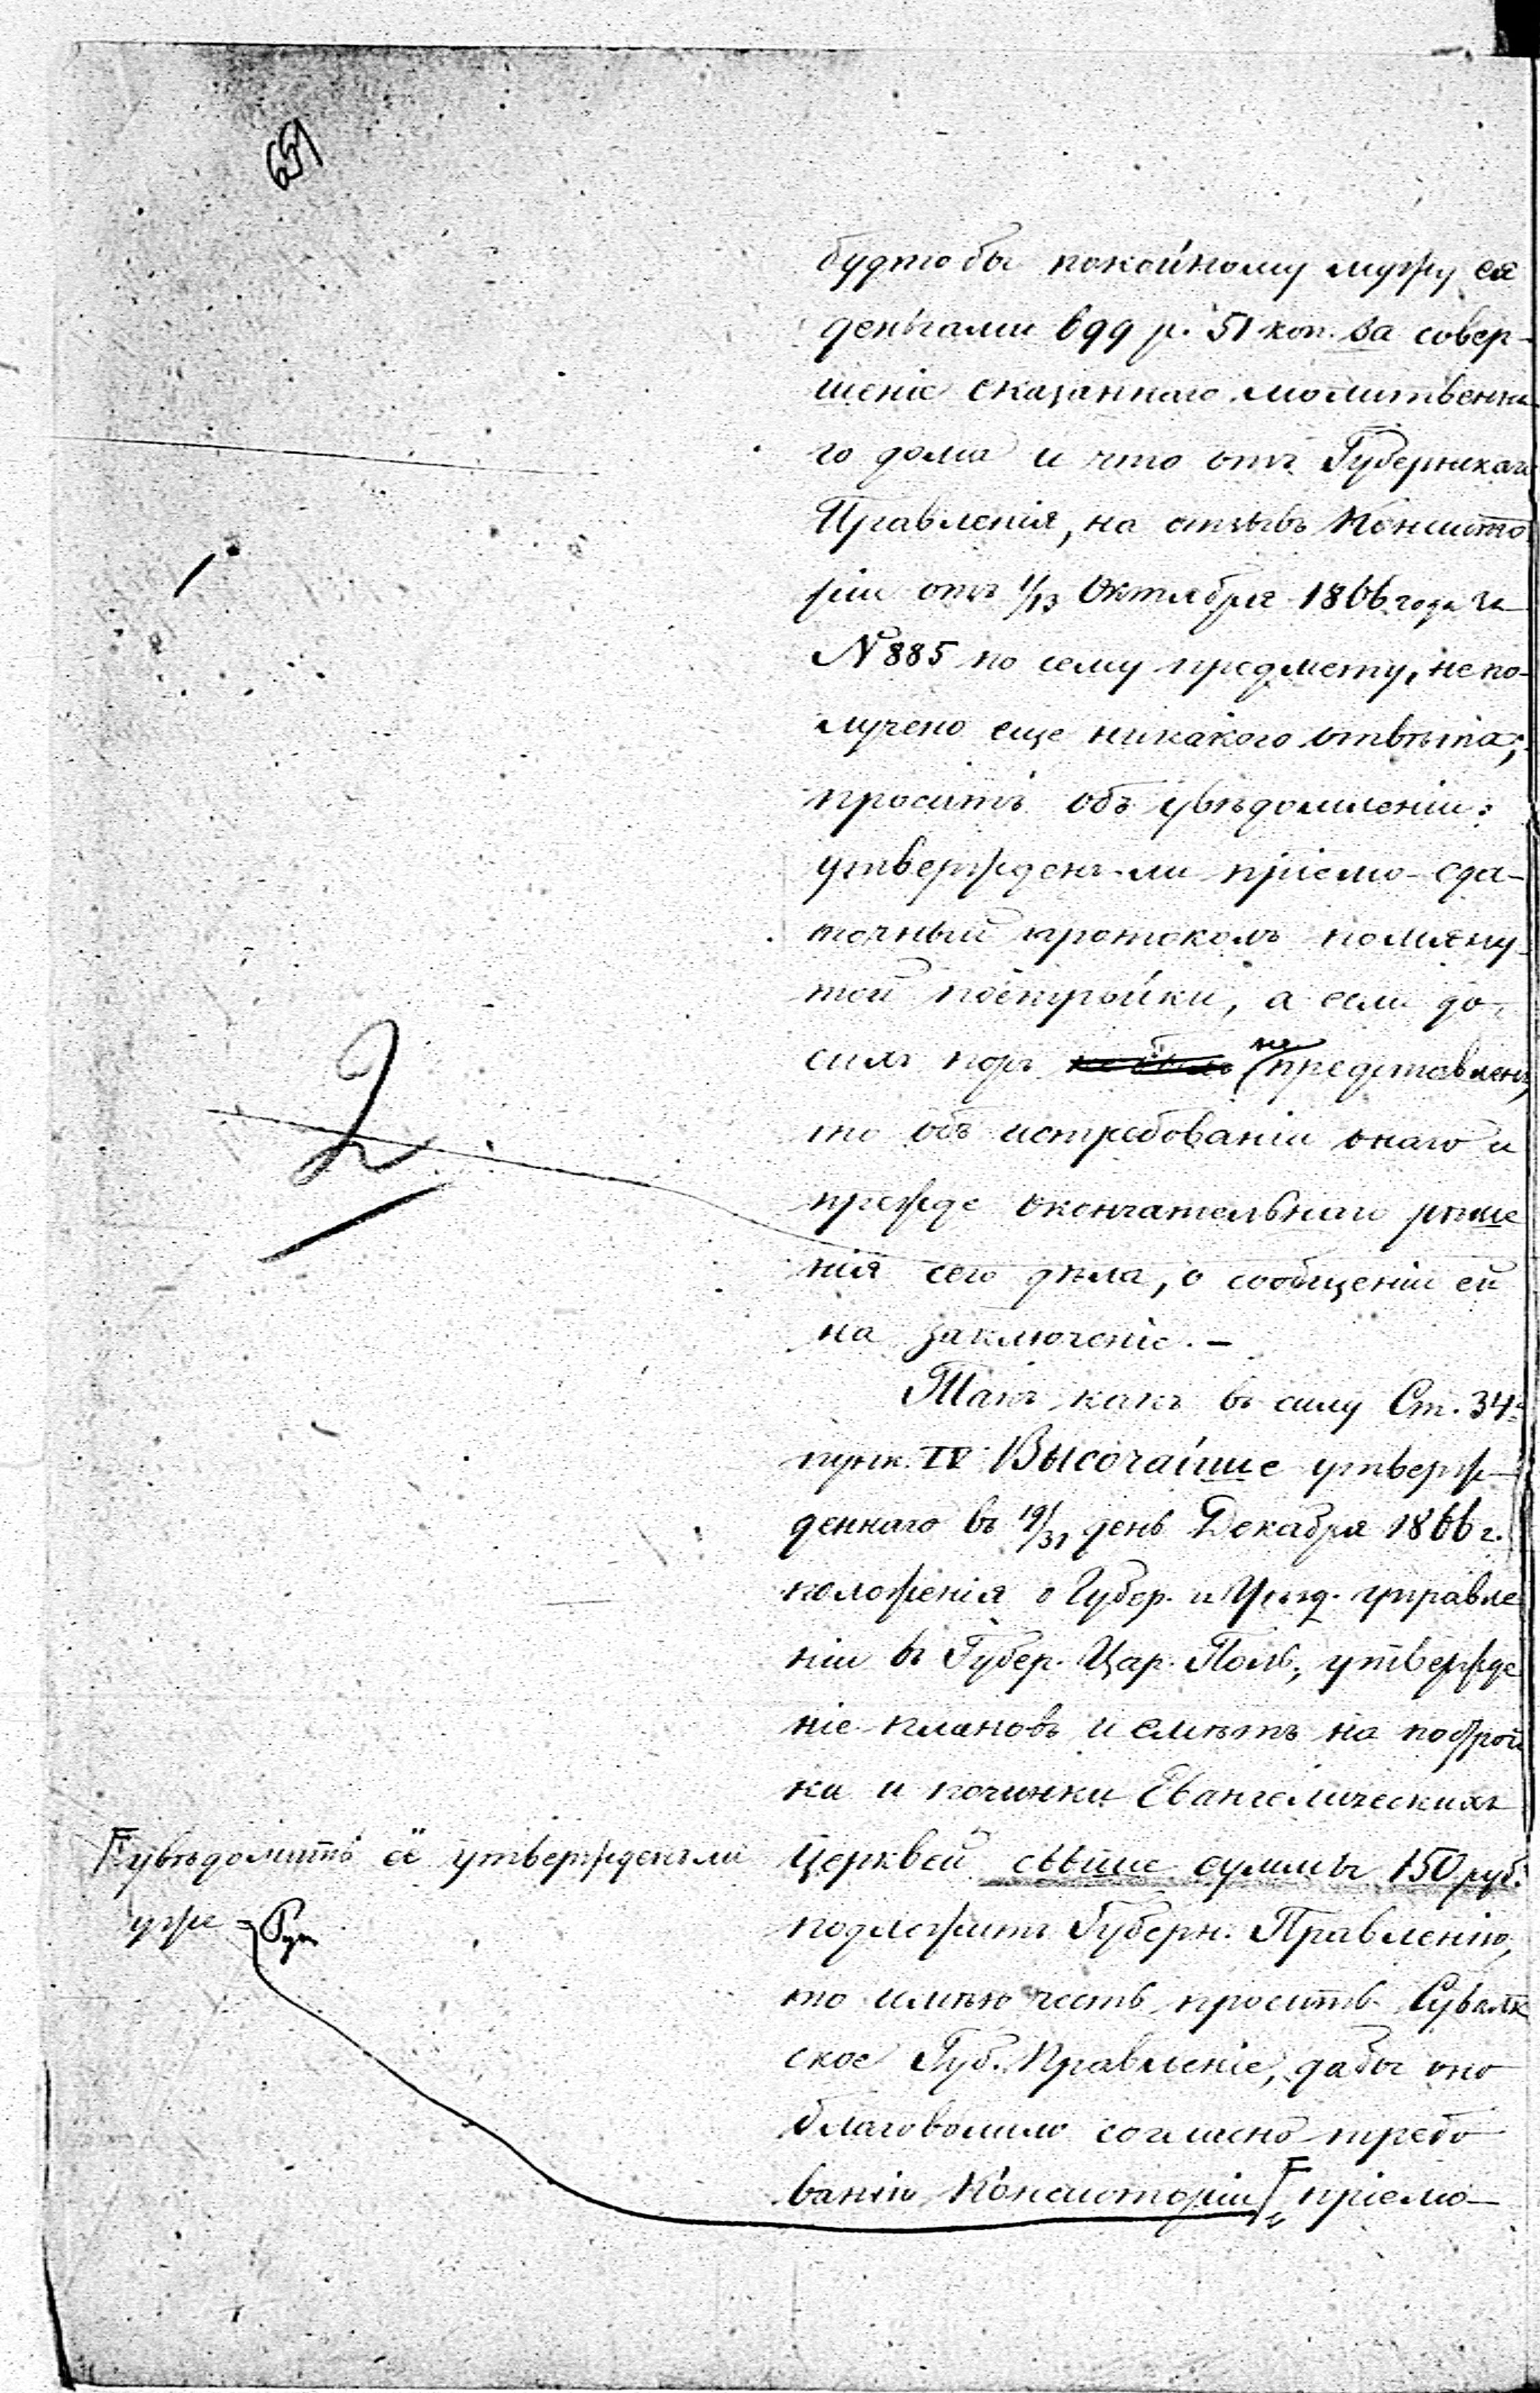 651
будто бы покойному мужу ея
деньгами 699 р. 51 коп. за совер-
шеніе сказаннаго молитвенна
го дома и что отъ Губернскаго
Правленія, на отзывъ Консисто
ріи отъ 1/13 Октября 1866 года за
№ 885 по сему предмету, не по-
лучено еще никакого отвѣта;
проситъ объ увѣдомленіи:
утвержденъ-ли пріемо-сда-
точный протоколъ помяну-
той постройки, а если до
сихъ поръ не представленъ,
то объ истребованіи онаго и
прежде окончательнаго рѣше
нія сего дѣла, о сообщеніи ей
на заключеніе. —
Такъ какъ въ силу Ст. 34
пунк. IV Высочайше утверж-
деннаго въ 19/31 день Декабря 1866 г.
положенія о Губер. и Уѣзд. управле
ніи въ Губер. Цар. Поль., утвержде
ніе плановъ и смѣтъ на построй
ки и починки Евангелическихъ
Церквей свыше суммы 150 руб.
подлежитъ Губерн. Правленію,
то имѣю честь просить Сувалк
ское Губ. Правленіе, дабы оно
благоволило согласно требо
ванію Консисторіи пріемо-
увѣдомить её утвержденъ ли
уже